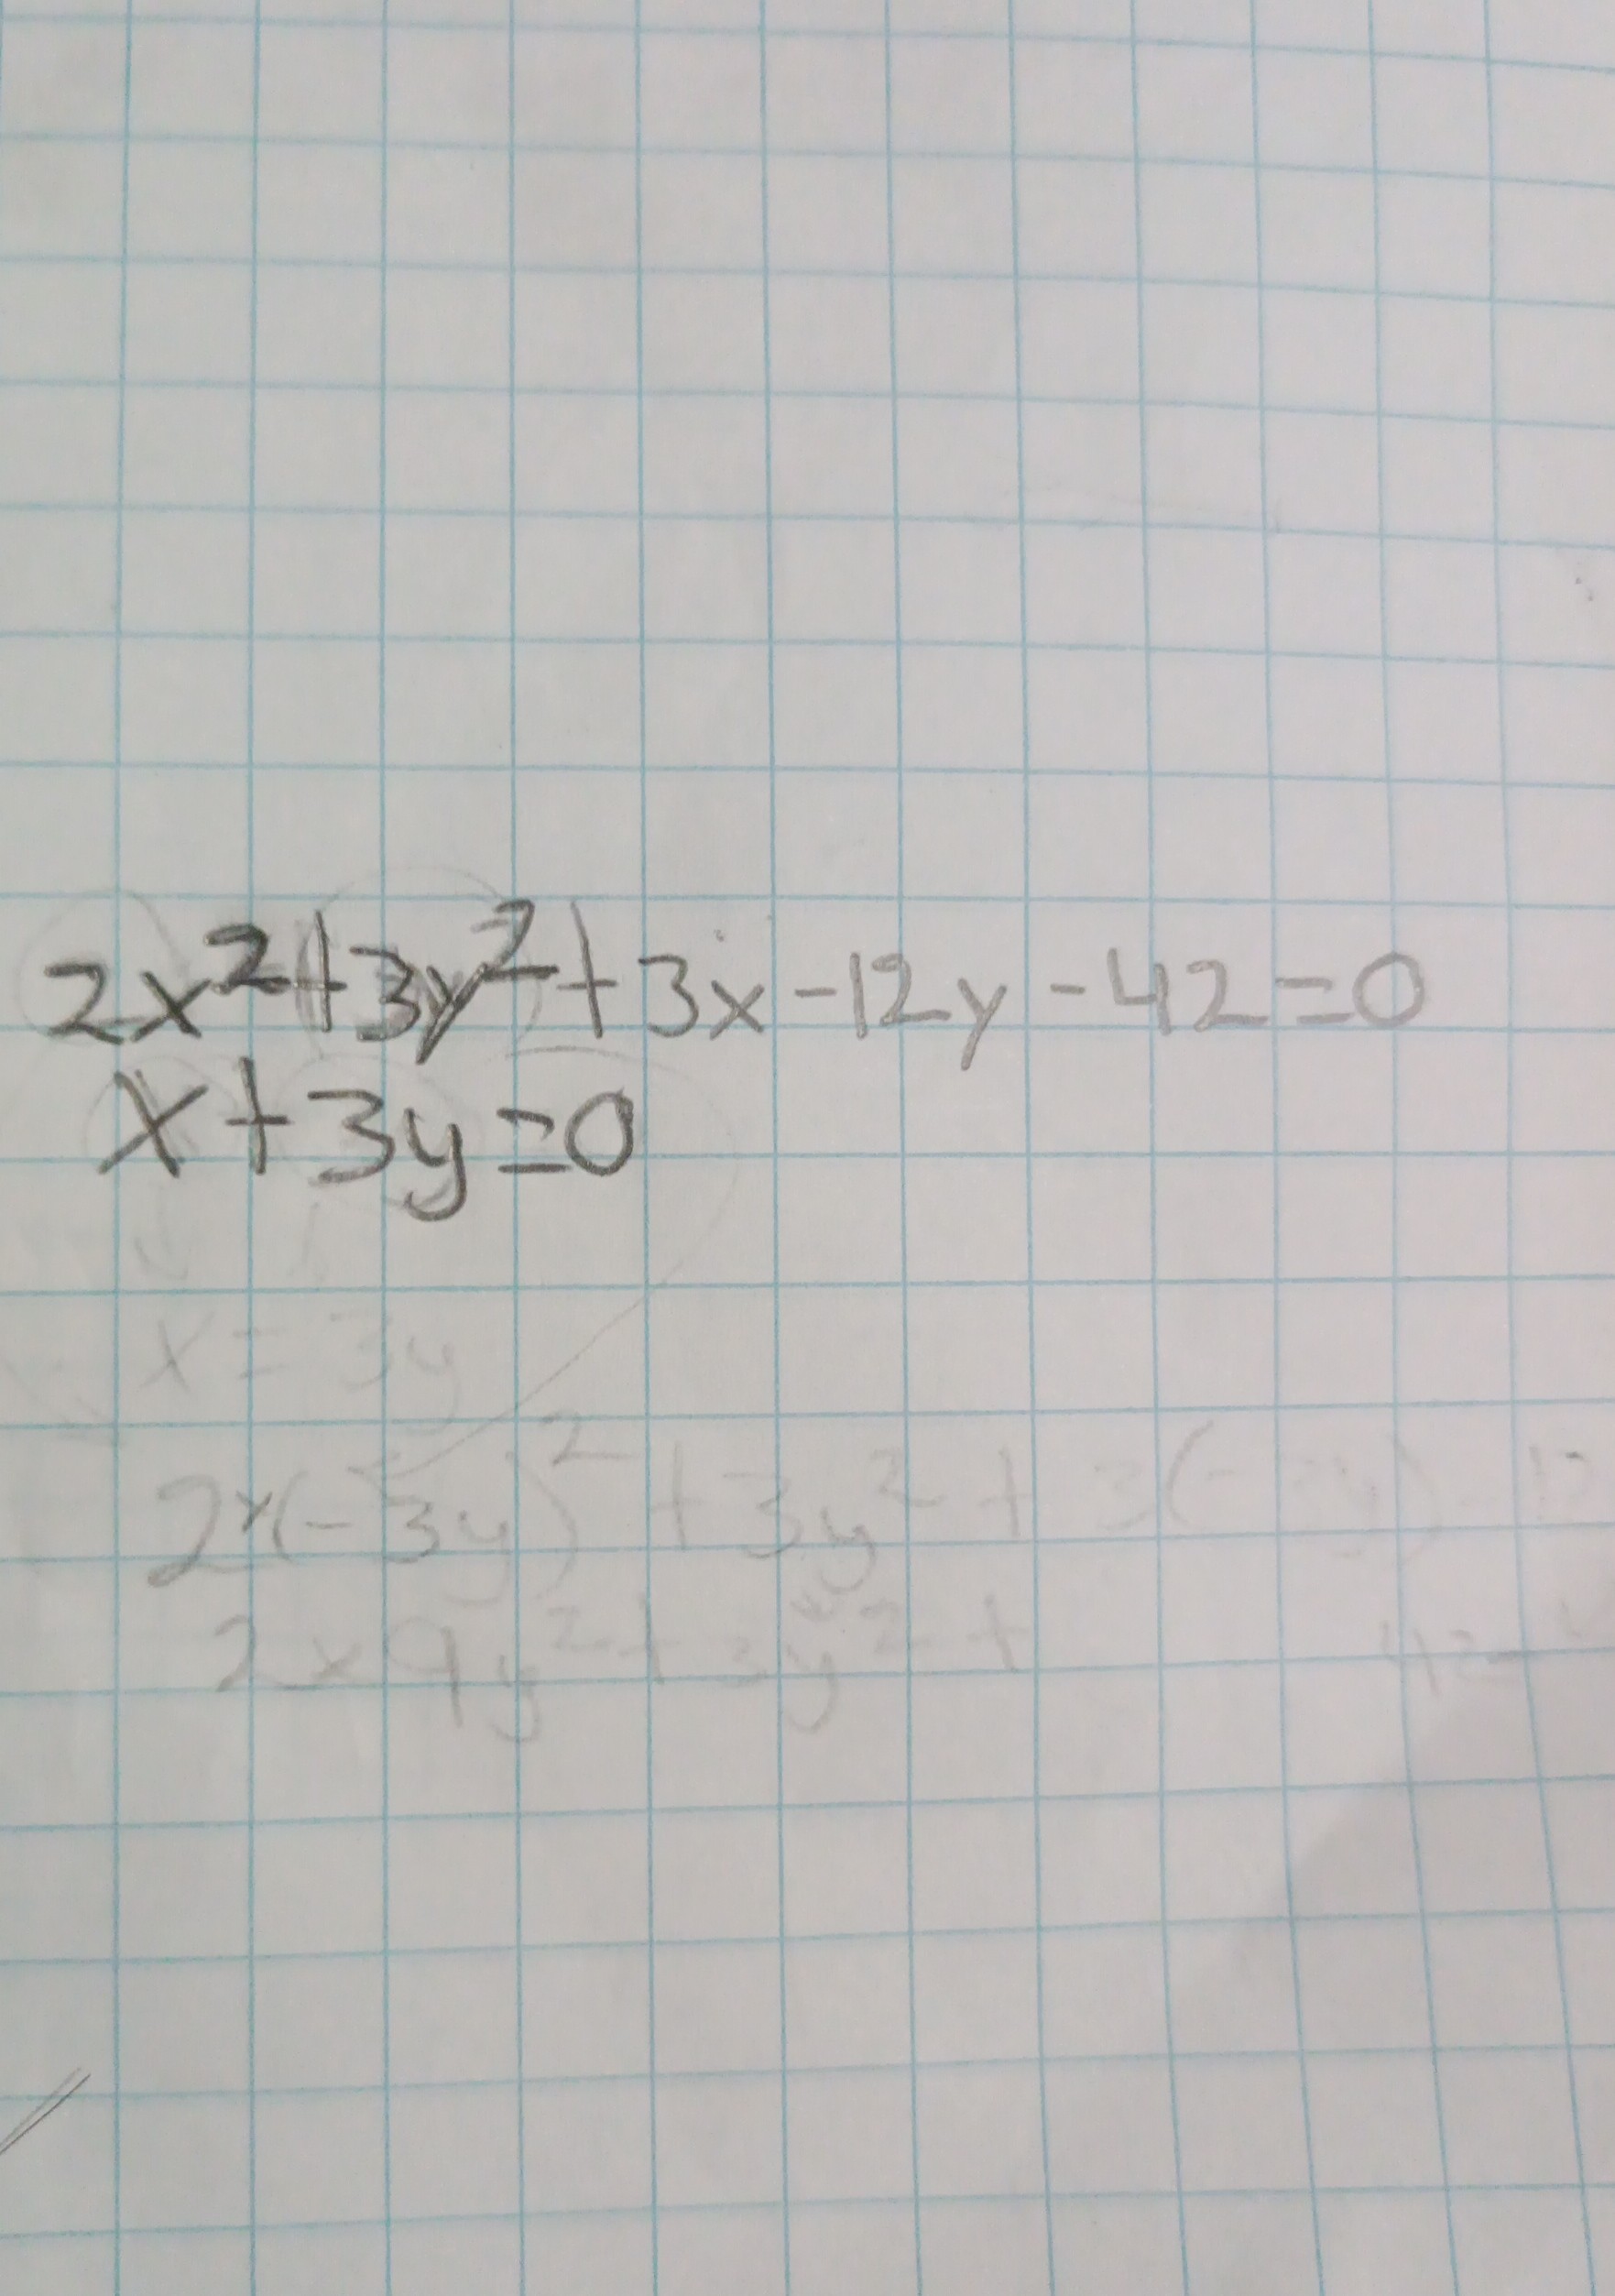 2x²+3y²+3x-12y-42=0
x+3y=0
x = 3y
2x(-3y)² + 3y² + 3(-3y)-12
2x9y²+3y²+